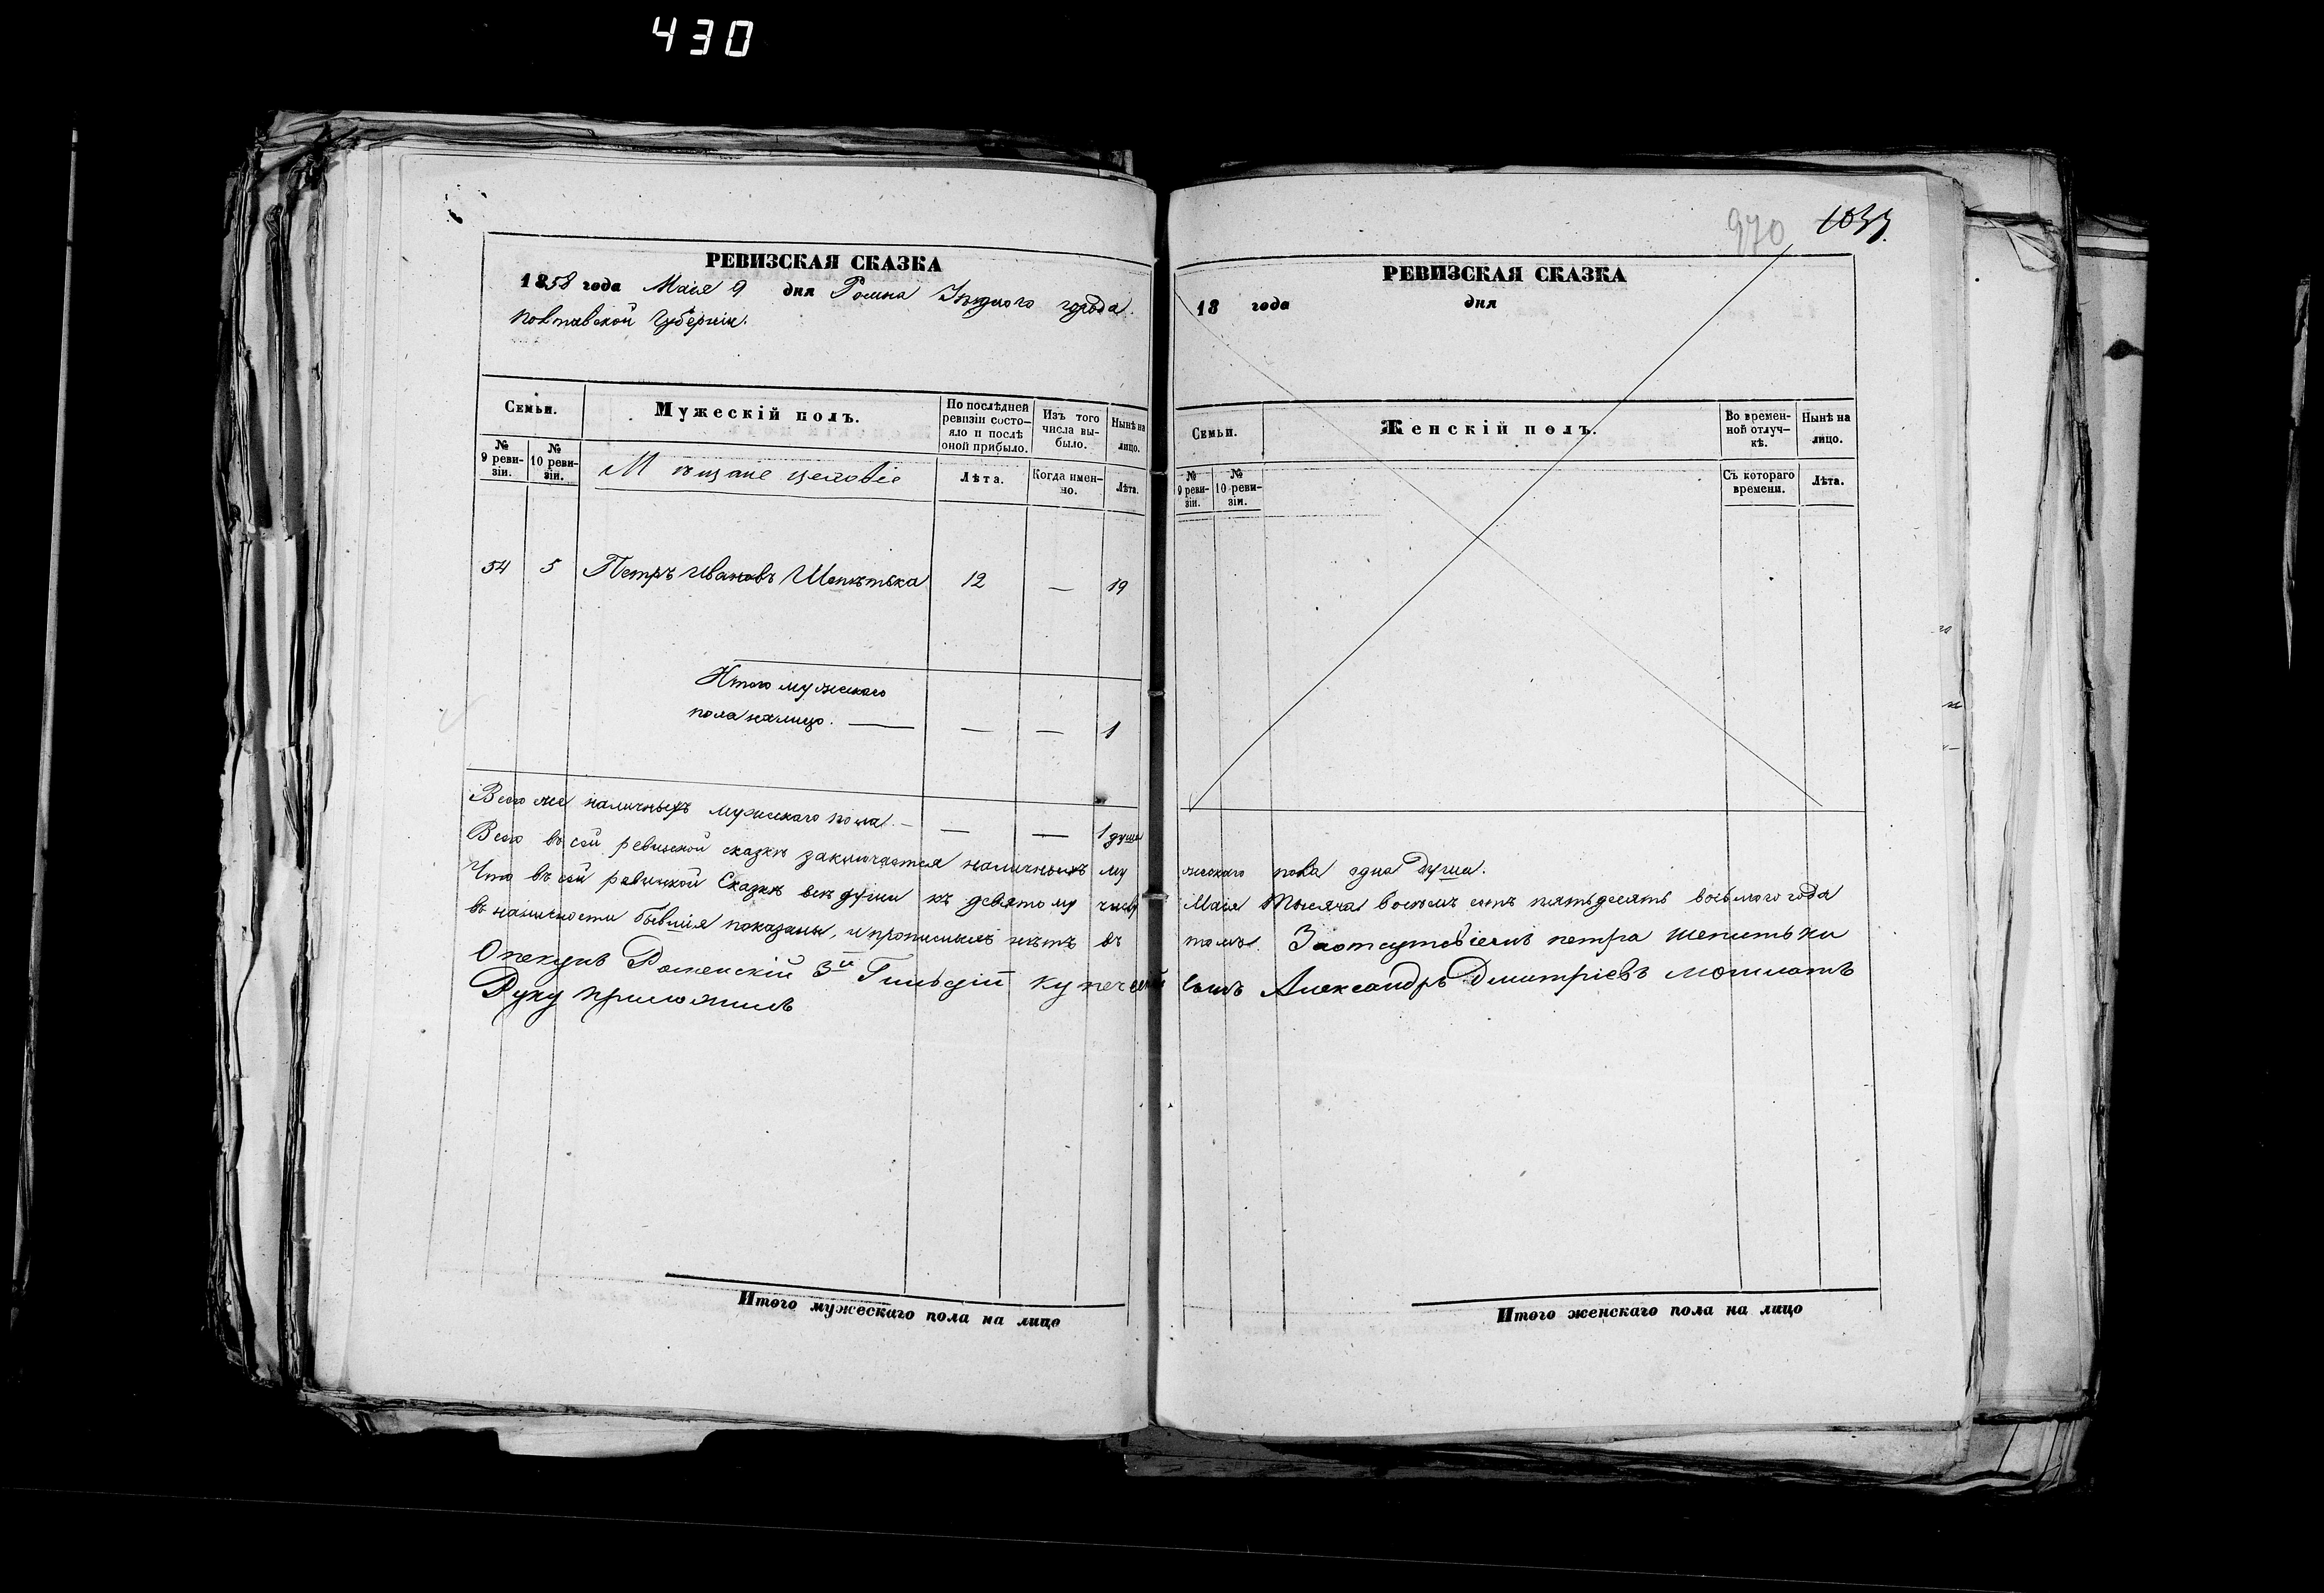 430
РЕВИЗСКАЯ СКАЗКА
1858 года Маія 9 дня Ромна Уѣзднаго города
Полтавской Губерніи.
Семьи.
Мужескій полъ.
По послѣдней ревизіи состояло и послѣ оной прибыло.
Изъ того числа выбыло.
Нынѣ на лицо.
№ 9 ревизіи.
№ 10 ревизіи.
Мѣщане
Лѣта.
Когда именно.
Лѣта.
54 5 Петръ Ивановъ Шепѣтька 12 — 19
Итого мужескаго
пола налицо. — — — 1
Всего же наличныхъ мужескаго пола. — — — 1 душа
Всего въ сей ревизской сказкѣ заключается наличныхъ му
Что въ сей ревизской Сказкѣ всѣ души къ девятому числу
въ наличности бывшія показаны, и прописныхъ нѣтъ въ
Опекунъ Роменскій 3й Гильдіи купеческій
Руку приложилъ
Итого мужескаго пола на лицо
970 1033.
РЕВИЗСКАЯ СКАЗКА
18 года дня
Семьи.
Женскій полъ.
Во временной отлучкѣ.
Нынѣ на лицо.
№ 9 ревизіи.
№ 10 ревизіи.
Съ котораго времени.
Лѣта.
жескаго пола одна душа.
Маія Тысяча восемь сотъ пятьдесятъ восьмого года
томъ. За отсутствіемъ петра шепитьки
сынъ Александръ Дмитріевъ
Итого женскаго пола на лицо